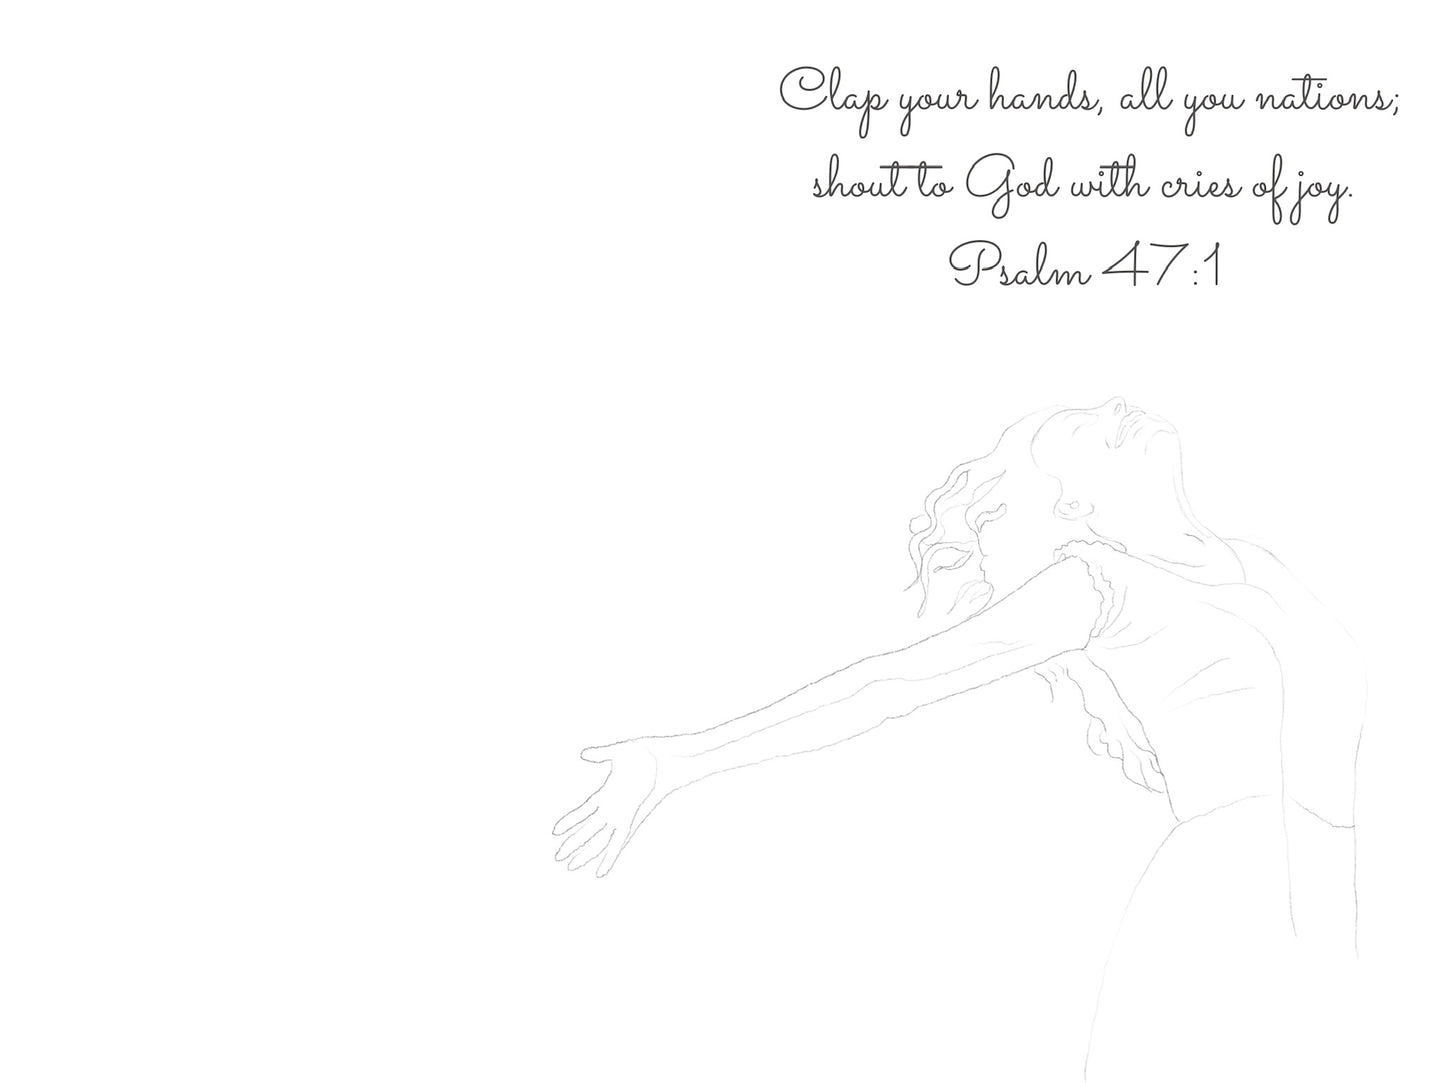 Clap your hands, all you nations;
shout to God with cries of joy.
Psalm 47:1